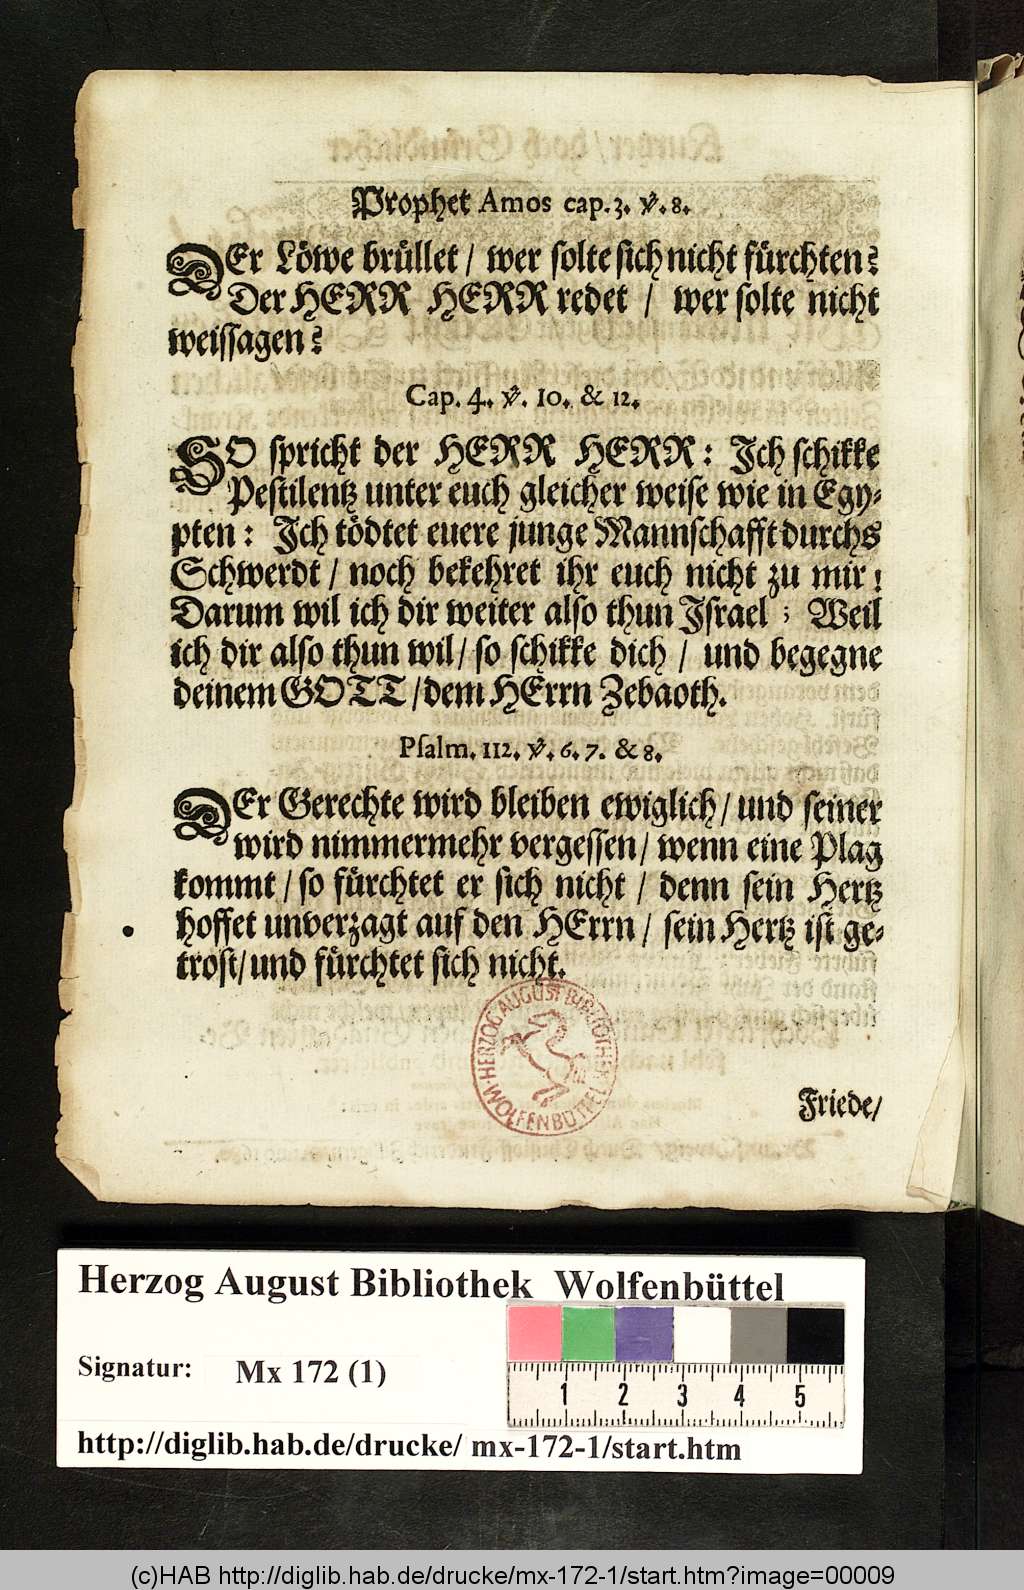 Prophet Amos cap. 3. ℣. 8.
DEr Löwe brüllet / wer solte sich nicht fürchten?
Der HERR HERR redet / wer solte nicht
weissagen?
Cap. 4. ℣. 10. & 12.
SO spricht der HERR HERR: Ich schikke
Pestilentz unter euch gleicher weise wie in Egy-
pten: Ich tödtet euere junge Mannschafft durchs
Schwerdt / noch bekehret ihr euch nicht zu mir!
Darum wil ich dir weiter also thun Israel; Weil
ich dir also thun wil / so schikke dich / und begegne
deinem GOTT / dem HErrn Zebaoth.
Psalm. 112. ℣. 6. 7. & 8.
DEr Gerechte wird bleiben ewiglich / und seiner
wird nimmermehr vergessen / wenn eine Plag
kommt / so fürchtet er sich nicht / denn sein Hertz
hoffet unverzagt auf den HErrn / sein Hertz ist ge-
trost / und fürchtet sich nicht.
HERZOG AUGUST BIBLIOTHEK
WOLFENBÜTTEL
Friede /
Herzog August Bibliothek Wolfenbüttel
Signatur: Mx 172 (1)
1 2 3 4 5
http://diglib.hab.de/drucke/ mx-172-1/start.htm
(c)HAB http://diglib.hab.de/drucke/mx-172-1/start.htm?image=00009